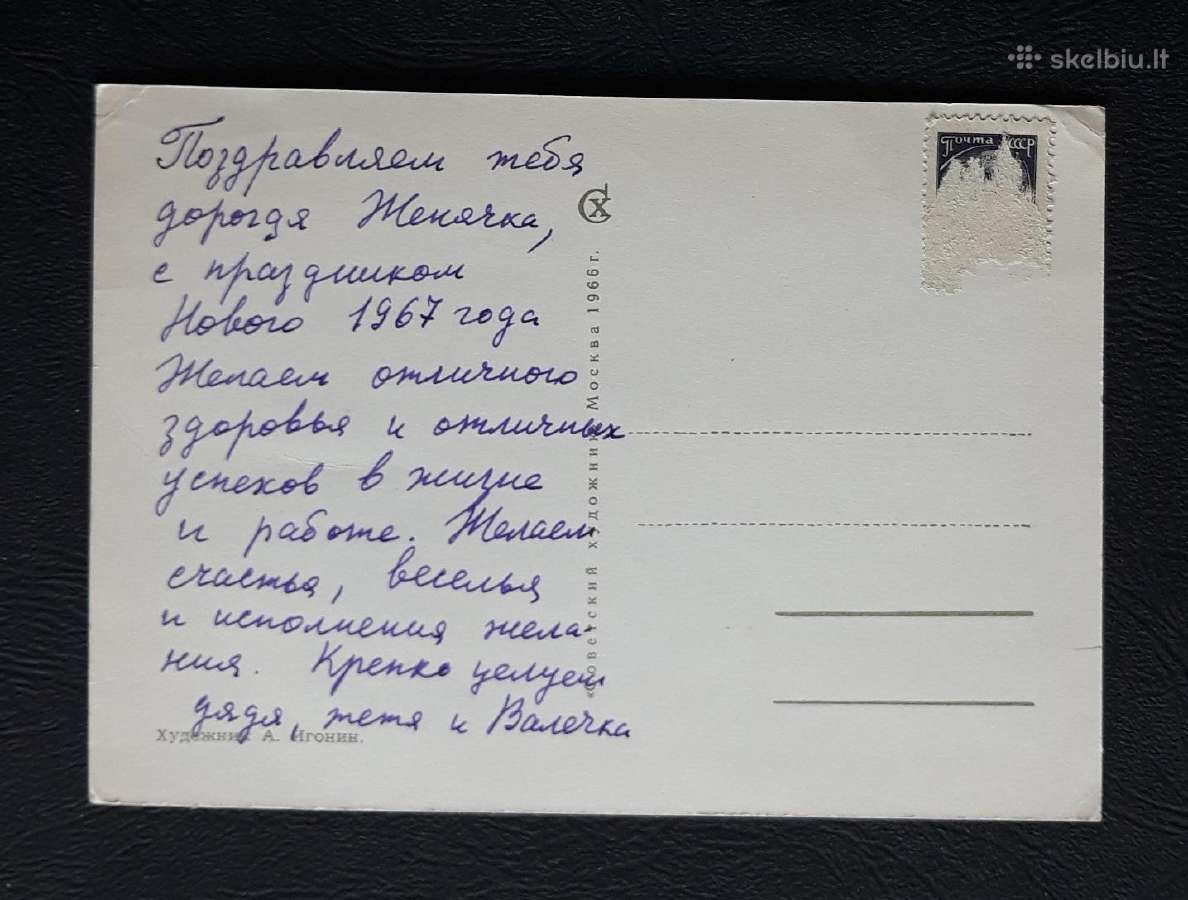 skelbiu.lt
Почта СССР
Поздравляем тебя
дорогая Женячка,
с праздником
Нового 1967 года
Желаем отличного
здоровья и отличных
успехов в жизне
и работе. Желаем
счастья, веселья
и исполнения жела-
ния. Крепко целуем
дядя, тетя и Валечка
Художник А. Игонин.
«Советский художник» Москва 1966 г.
СХ